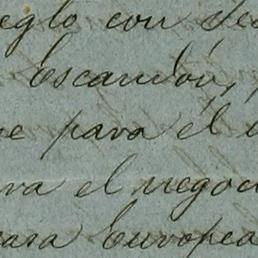 eglo con
Escandón,
e para él
ra el negoci
casa Europea